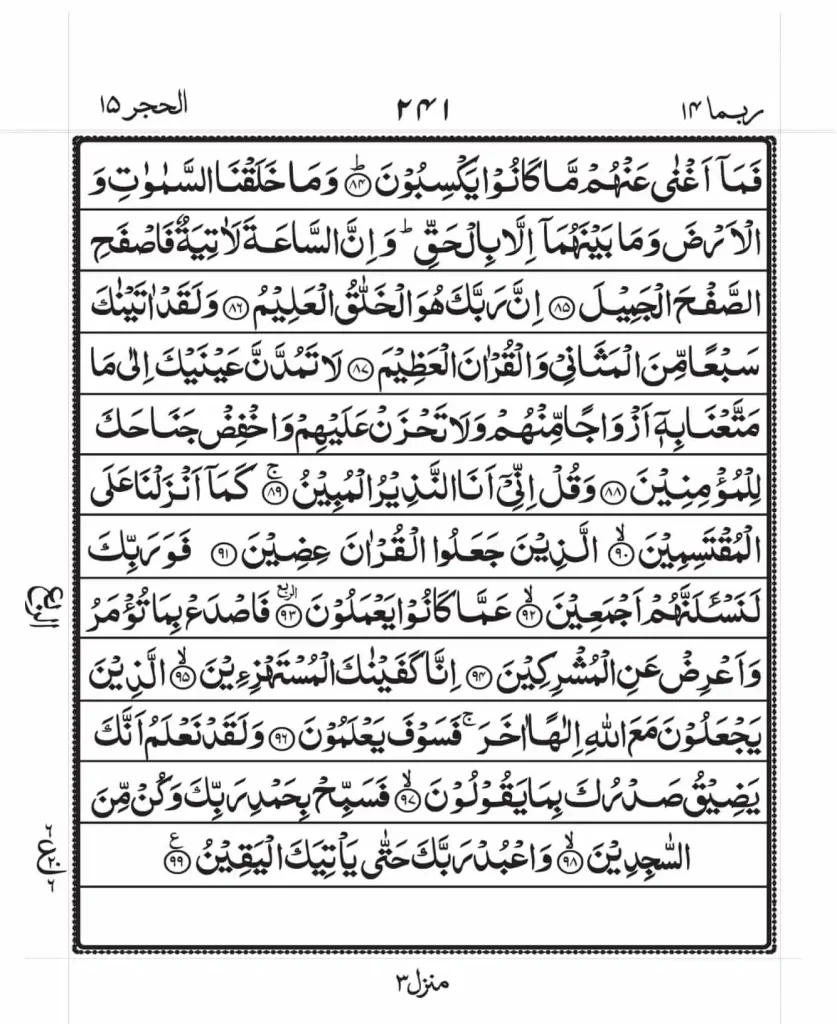 ربما ۱۴ ۲۴۱ الحجر ۱۵
فَمَاۤ اَغْنٰى عَنْهُمْ مَّا كَانُوْا يَكْسِبُوْنَؕ ۸۴ وَمَا خَلَقْنَا السَّمٰوٰتِ وَ
الْاَرْضَ وَمَا بَيْنَهُمَاۤ اِلَّا بِالْحَقِّؕ وَاِنَّ السَّاعَةَ لَاٰتِيَةٌ فَاصْفَحِ
الصَّفْحَ الْجَمِيْلَ ۸۵ اِنَّ رَبَّكَ هُوَ الْخَلّٰقُ الْعَلِيْمُ ۸۶ وَلَقَدْ اٰتَيْنٰكَ
سَبْعًا مِّنَ الْمَثَانِيْ وَالْقُرْاٰنَ الْعَظِيْمَ ۸۷ لَا تَمُدَّنَّ عَيْنَيْكَ اِلٰى مَا
مَتَّعْنَا بِهٖۤ اَزْوَاجًا مِّنْهُمْ وَلَا تَحْزَنْ عَلَيْهِمْ وَاخْفِضْ جَنَاحَكَ
لِلْمُؤْمِنِيْنَ ۸۸ وَقُلْ اِنِّيْۤ اَنَا النَّذِيْرُ الْمُبِيْنُۚ ۸۹ كَمَاۤ اَنْزَلْنَا عَلَى
الْمُقْتَسِمِيْنَۙ ۹۰ الَّذِيْنَ جَعَلُوا الْقُرْاٰنَ عِضِيْنَ ۹۱ فَوَرَبِّكَ
لَنَسْـَٔلَنَّهُمْ اَجْمَعِيْنَۙ ۹۲ عَمَّا كَانُوْا يَعْمَلُوْنَ الربع ۹۳ فَاصْدَعْ بِمَا تُؤْمَرُ
الربع
وَاَعْرِضْ عَنِ الْمُشْرِكِيْنَ ۹۴ اِنَّا كَفَيْنٰكَ الْمُسْتَهْزِءِيْنَۙ ۹۵ الَّذِيْنَ
يَجْعَلُوْنَ مَعَ اللّٰهِ اِلٰهًا اٰخَرَۚ فَسَوْفَ يَعْلَمُوْنَ ۹۶ وَلَقَدْ نَعْلَمُ اَنَّكَ
يَضِيْقُ صَدْرُكَ بِمَا يَقُوْلُوْنَۙ ۹۷ فَسَبِّحْ بِحَمْدِ رَبِّكَ وَكُنْ مِّنَ
السّٰجِدِيْنَۙ ۹۸ وَاعْبُدْ رَبَّكَ حَتّٰى يَاْتِيَكَ الْيَقِيْنُ ع ۹۹
منزل ۳